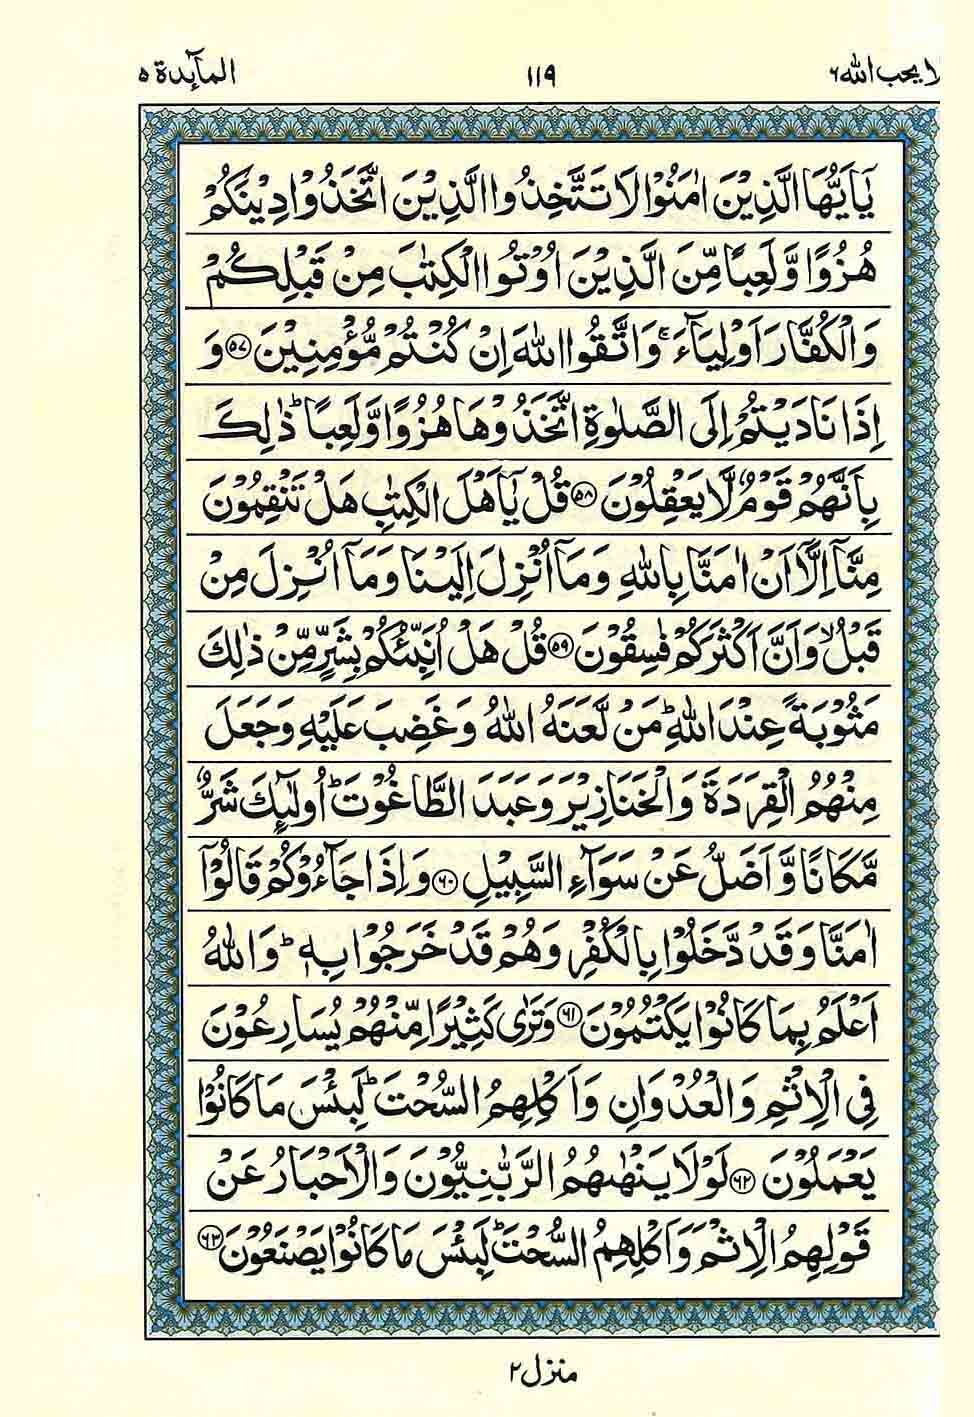 لا يحب الله ٦ ١١٩ المآئدة ٥
يٰۤاَيُّهَا الَّذِيْنَ اٰمَنُوْا لَا تَتَّخِذُوا الَّذِيْنَ اتَّخَذُوْا دِيْنَكُمْ
هُزُوًا وَّ لَعِبًا مِّنَ الَّذِيْنَ اُوْتُوا الْكِتٰبَ مِنْ قَبْلِكُمْ
وَ الْكُفَّارَ اَوْلِيَآءَ ۚ وَ اتَّقُوا اللّٰهَ اِنْ كُنْتُمْ مُّؤْمِنِيْنَ ﴿٥٧﴾ وَ
اِذَا نَادَيْتُمْ اِلَى الصَّلٰوةِ اتَّخَذُوْهَا هُزُوًا وَّ لَعِبًا ؕ ذٰلِكَ
بِاَنَّهُمْ قَوْمٌ لَّا يَعْقِلُوْنَ ﴿٥٨﴾ قُلْ يٰۤاَهْلَ الْكِتٰبِ هَلْ تَنْقِمُوْنَ
مِنَّاۤ اِلَّاۤ اَنْ اٰمَنَّا بِاللّٰهِ وَ مَاۤ اُنْزِلَ اِلَيْنَا وَ مَاۤ اُنْزِلَ مِنْ
قَبْلُ ۙ وَ اَنَّ اَكْثَرَكُمْ فٰسِقُوْنَ ﴿٥٩﴾ قُلْ هَلْ اُنَبِّئُكُمْ بِشَرٍّ مِّنْ ذٰلِكَ
مَثُوْبَةً عِنْدَ اللّٰهِ ؕ مَنْ لَّعَنَهُ اللّٰهُ وَ غَضِبَ عَلَيْهِ وَ جَعَلَ
مِنْهُمُ الْقِرَدَةَ وَ الْخَنَازِيْرَ وَ عَبَدَ الطَّاغُوْتَ ؕ اُولٰٓئِكَ شَرٌّ
مَّكَانًا وَّ اَضَلُّ عَنْ سَوَآءِ السَّبِيْلِ ﴿٦٠﴾ وَ اِذَا جَآءُوْكُمْ قَالُوْۤا
اٰمَنَّا وَ قَدْ دَّخَلُوْا بِالْكُفْرِ وَ هُمْ قَدْ خَرَجُوْا بِهٖ ؕ وَ اللّٰهُ
اَعْلَمُ بِمَا كَانُوْا يَكْتُمُوْنَ ﴿٦١﴾ وَ تَرٰى كَثِيْرًا مِّنْهُمْ يُسَارِعُوْنَ
فِي الْاِثْمِ وَ الْعُدْوَانِ وَ اَكْلِهِمُ السُّحْتَ ؕ لَبِئْسَ مَا كَانُوْا
يَعْمَلُوْنَ ﴿٦٢﴾ لَوْلَا يَنْهٰىهُمُ الرَّبّٰنِيُّوْنَ وَ الْاَحْبَارُ عَنْ
قَوْلِهِمُ الْاِثْمَ وَ اَكْلِهِمُ السُّحْتَ ؕ لَبِئْسَ مَا كَانُوْا يَصْنَعُوْنَ ﴿٦٣﴾
منزل ٢